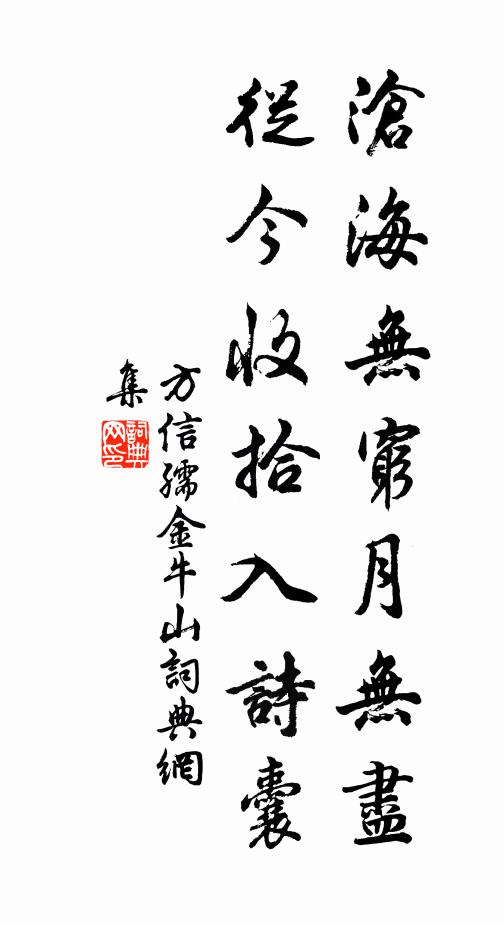 滄海無窮月無盡
從今收拾入詩囊
方信孺金牛山詞典網
集
詞典網印